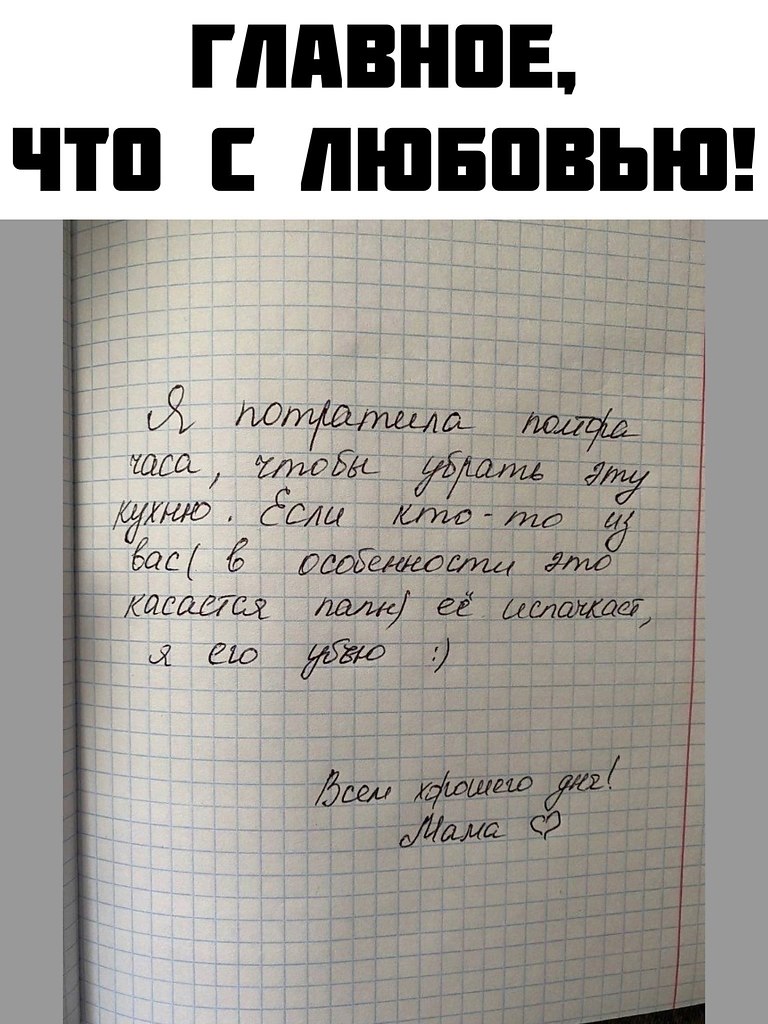 ГЛАВНОЕ,
ЧТО С ЛЮБОВЬЮ!
Я потратила полтора
часа, чтобы убрать эту
кухню. Если кто-то из
вас( в особенности это
касается папы) её испачкает,
я его убью :)
Всем хорошего дня!
Мама ♡